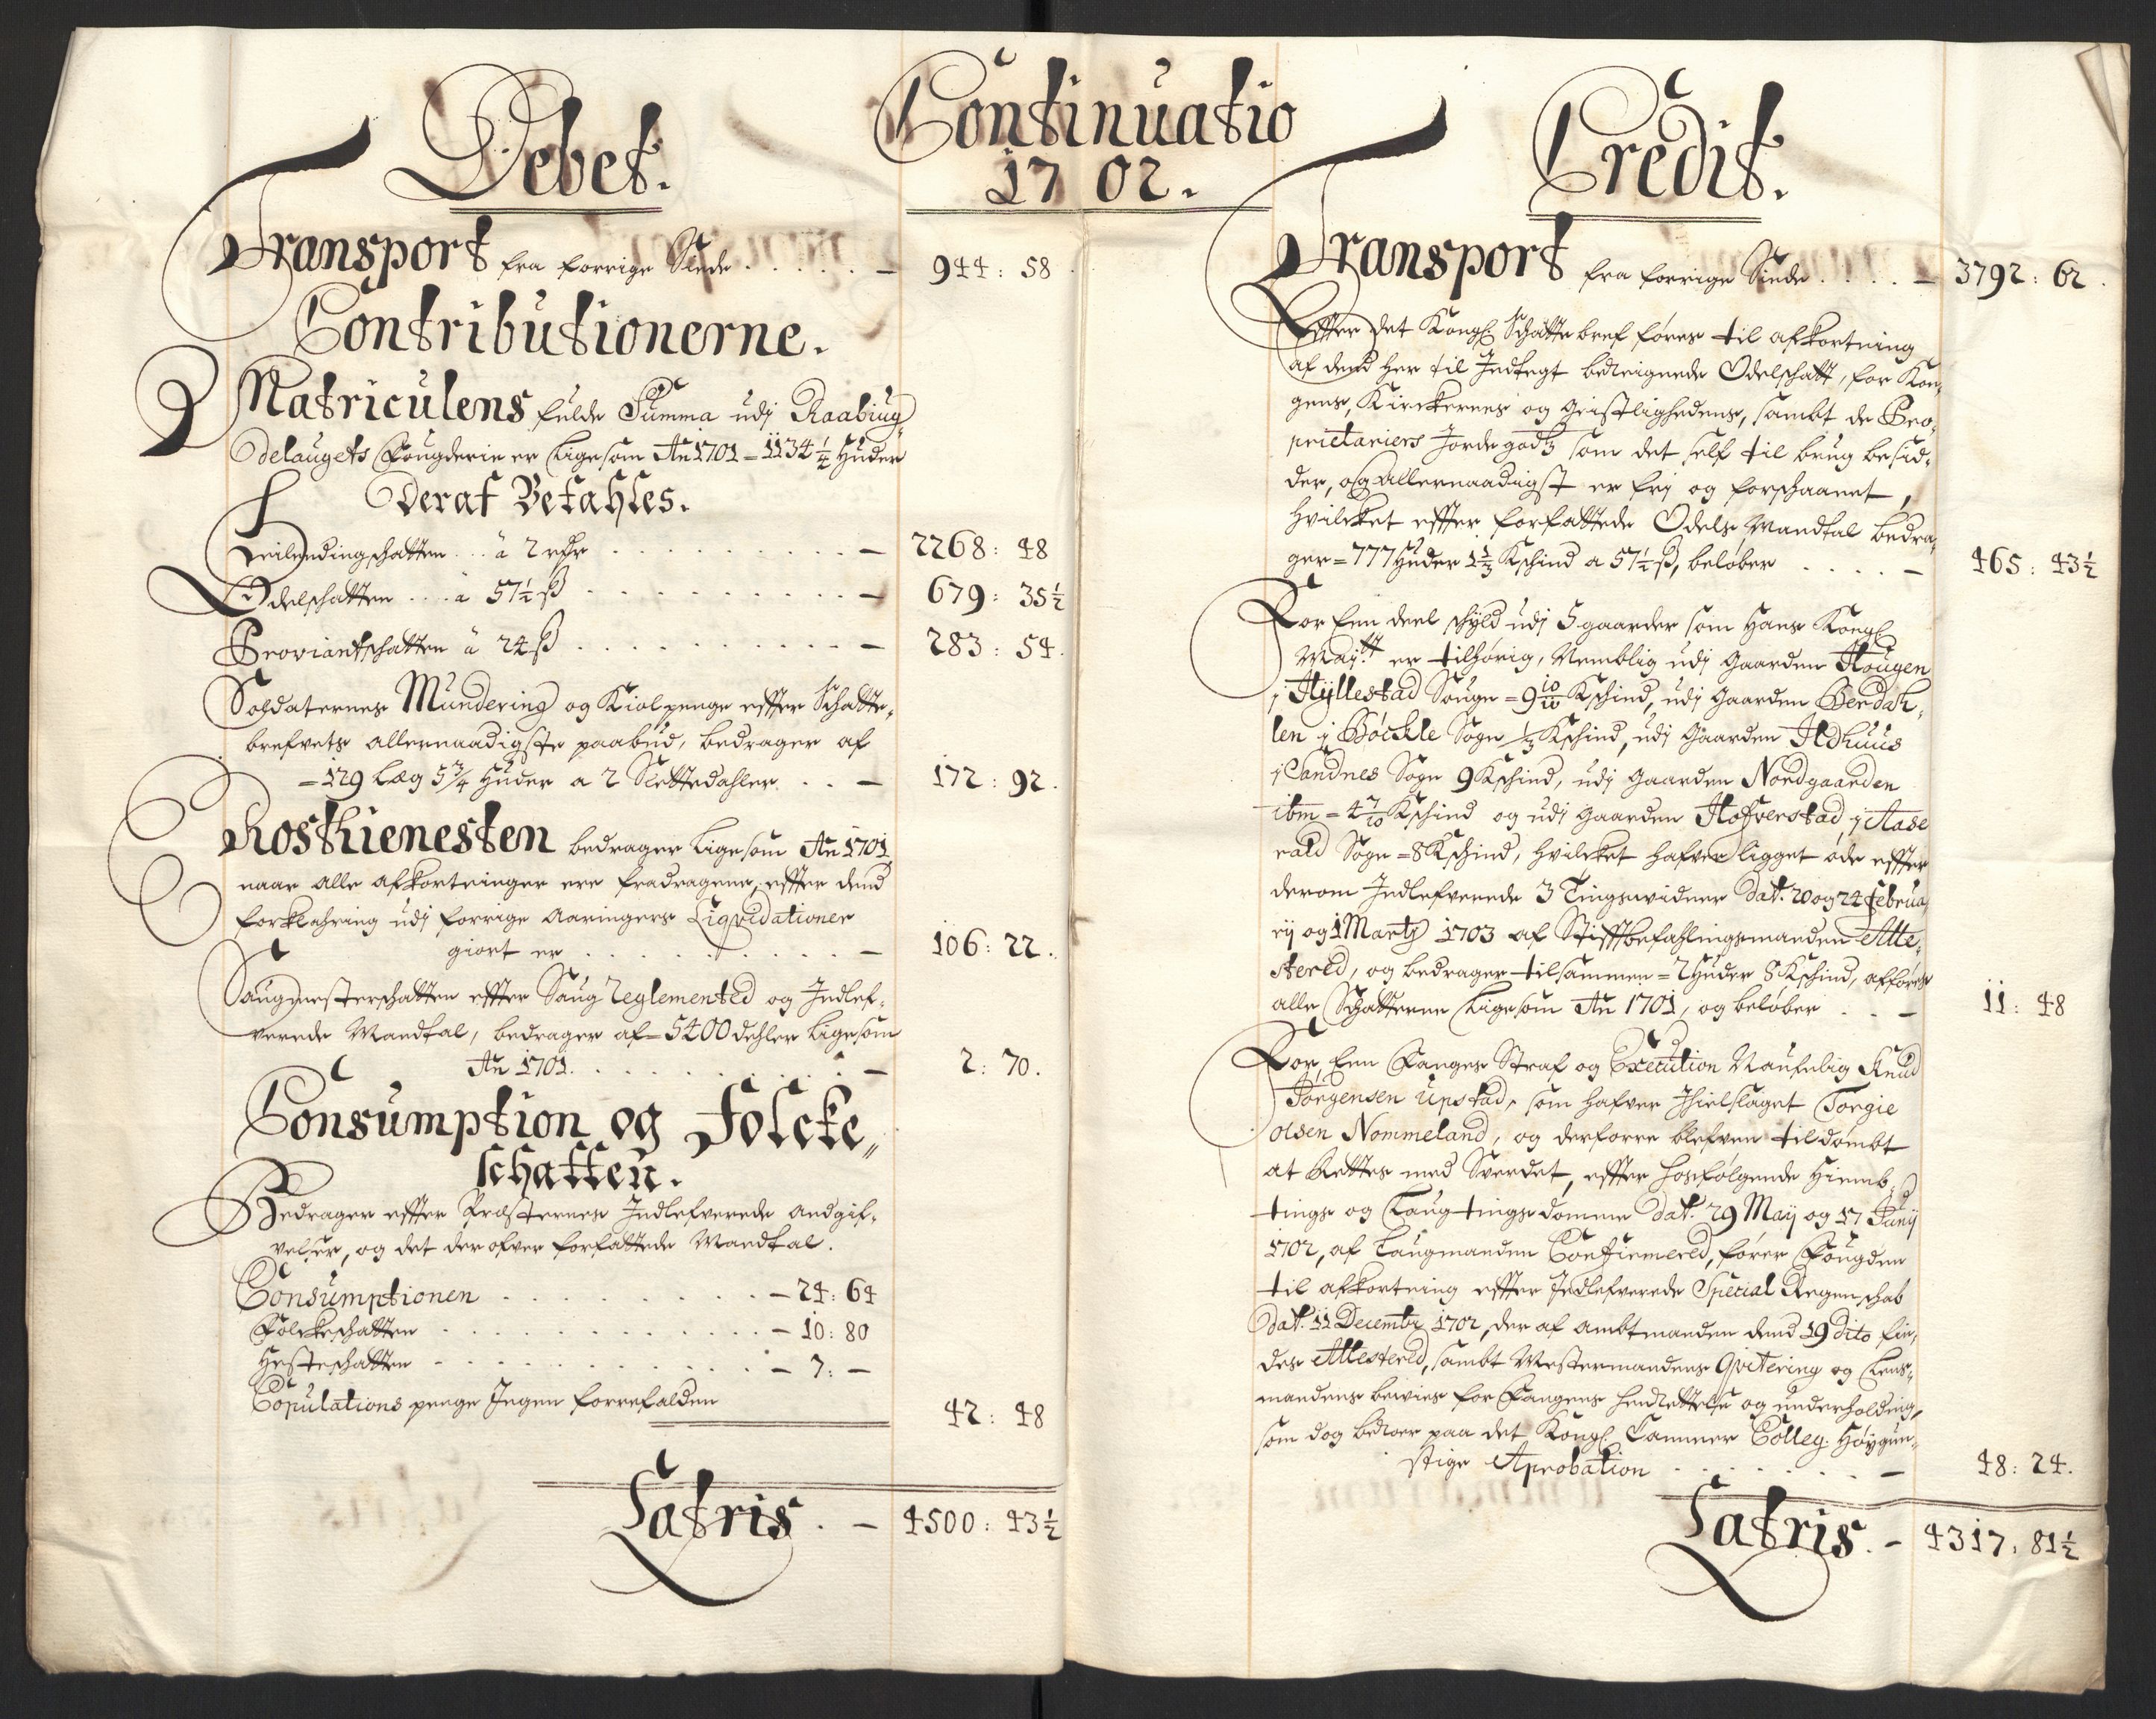 Continuatio
1702.
Debet.
Transport fra forrige Siude . . . . . — 944: 58
Contributionerne.
Matriculens fulde Summa udj Raabiug-
delaugets Fougderie er Ligesom Añ 1701 = 1134 1/4 Huder
Deraf Betahles.
Leilendingschatten . . . à 2 rdr . . . — 2268: 48
Odelschatten . . . à 57 1/2 ß . . . — 679: 35 1/2
Proviantschatten à 24 ß . . . — 283: 54.
Soldaternes Mundering og Kiolpenge effter Schatte-
brefvets allernaadigste paabud, bedrager af
= 129 Læg 5 3/4 Huder a 2 Slettedahler . . . — 172: 92.
Rostienesten bedrager Ligesom Añ 1701
naar alle afkortninger ere fradragene, effter dend
forklahring udj forrige Aaringers Liqvidationer
giort er . . . — 106: 22.
Saugmesterschatten effter Saug Reglemented og Indlef-
verede Mandtal, bedrager af = 5400 dehler Ligesom
Añ 1701. . . . — 2: 70.
Consumption og Folcke-
schatten.
Bedrager effter Præsternes Indlefverede andgif-
velser, og det derofver forfattede Mandtal.
Consumptionen . . . — 24: 64
Folckeschatten . . . — 10: 80
Hesteschatten . . . — 7: —
Copulations penge Ingen forrefalden
42: 48
Latris. — 4500: 43 1/2
Credit.
Transport fra forrige Siude . . . . — 3792: 62.
Effter det Kongl Schattebref føres til afkortning
af dend her til Indtegt beregnede Odelschatt, for Kon-
gens, Kirckernes og Geistlighedens, sambt de Pro-
prietariers Jordegodtz som det self til brug besid-
der, og Allernaadigst er frj og forschaanet,
hvilcket effter forfattede Odels Mandtal bedra-
ger = 777 Huder 1 1/3 Kschind a 57 1/2 ß, beløber . . . . — 465: 43 1/2
For Een deel schyld udj 5 gaarder som Hans Kongl
Maytt er tilhørig, Nemblig udj Gaarden Hougen
j Hyllestad Sougn = 9 10/10 Kschind, udj Gaarden Berdah-
len j Bøchle Sogn 1/3 Kschind, udj Gaarden Ildhuus
j Sandnes Sogn 9 Kschind, udj Gaarden Nordgaarden
ibm = 4 7/10 Kschind og udj Gaarden Hofverstad j Aase
rald Sogn = 8 Kschind, hvilcket hafver ligget øde effter
derom Indlefverede 3 Tingswidner dat. 20 og 24 Februa-
rij og 1 Martj 1703 af Stifftbefahlingsmanden Atte-
stered, og bedrager tilsammen = 2 Huder 8 Kschind, afføres
alle Schatterne Ligesom Añ 1701, og beløber . . . — 11: 48
For Een Fanges Straf og Execution Naufnlig Knud
Jørgensen Upstad, som hafver Ihielslaget Torgie
Olsen Nommeland, og derforre blefven tildømbt
at Rettes med Sverdet, effter hosfølgende Hiemb-
tings og Laugtings domme dat. 29 Maij og 17 Junij
1702, af Laugmanden Confirmered, fører Fougden
til afkortning effter Indlefverede Special Regenschab
dat. 11 Decembr 1702, der af ambtmanden dend 19 dito fin-
des Attestered, sambt Mestermandens Qvitering og Lens-
mandens bewies for Fangens henrettelse og underholdning,
som dog beroer paa det Kongl. Cammer Colleg. Høygun-
stige Aprobation . . . — 48: 24.
Latris. — 4317: 81 1/2